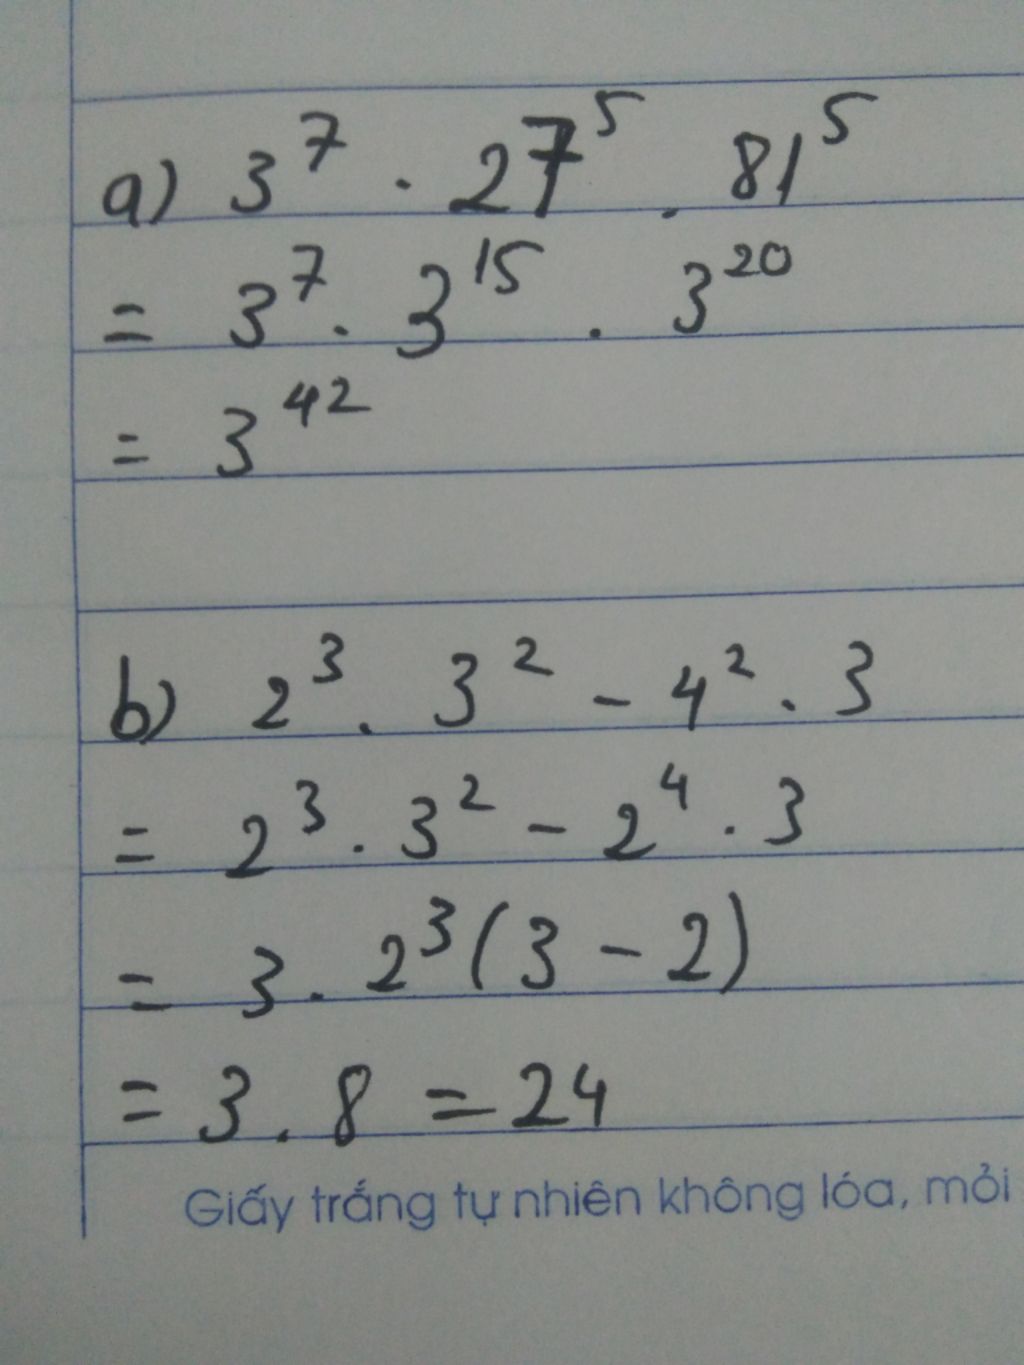 a) 3⁷ . 27⁵ . 81⁵
= 3⁷ . 3¹⁵ . 3²⁰
= 3⁴²
b) 2³ . 3² - 4² . 3
= 2³ . 3² - 2⁴ . 3
= 3 . 2³ (3 - 2)
= 3 . 8 = 24
Giấy trắng tự nhiên không lóa, mỏi